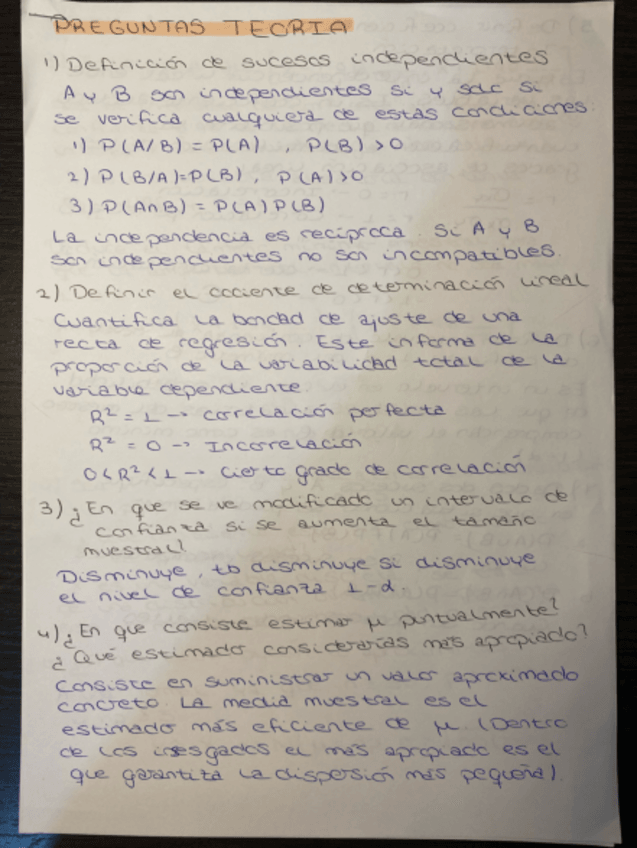 PREGUNTAS TEORIA
1) Definición de sucesos independientes
A y B son independientes si y solo si
se verifica cualquiera de estas condiciones:
1) P(A/B) = P(A) , P(B) > 0
2) P(B/A)=P(B) , P(A)>0
3) P(A∩B) = P(A)P(B)
La independencia es recíproca. Si A y B
son independientes no son incompatibles.
2) Definir el cociente de determinación lineal
Cuantifica la bondad de ajuste de una
recta de regresión. Este informa de la
proporción de la variabilidad total de la
variable dependiente.
R² = 1 → correlación perfecta
R² = 0 → Incorrelación
0<R²<1 → Cierto grado de correlación
3) ¿En que se ve modificado un intervalo de
confianza si se aumenta el tamaño
muestral?
Disminuye, tb disminuye si disminuye
el nivel de confianza 1-α.
4) ¿En que consiste estimar μ puntualmente?
¿Qué estimador considerarías más apropiado?
Consiste en suministrar un valor aproximado
concreto. La media muestral es el
estimador más eficiente de μ. (Dentro
de los insesgados el más apropiado es el
que garantiza la dispersión más pequeña).